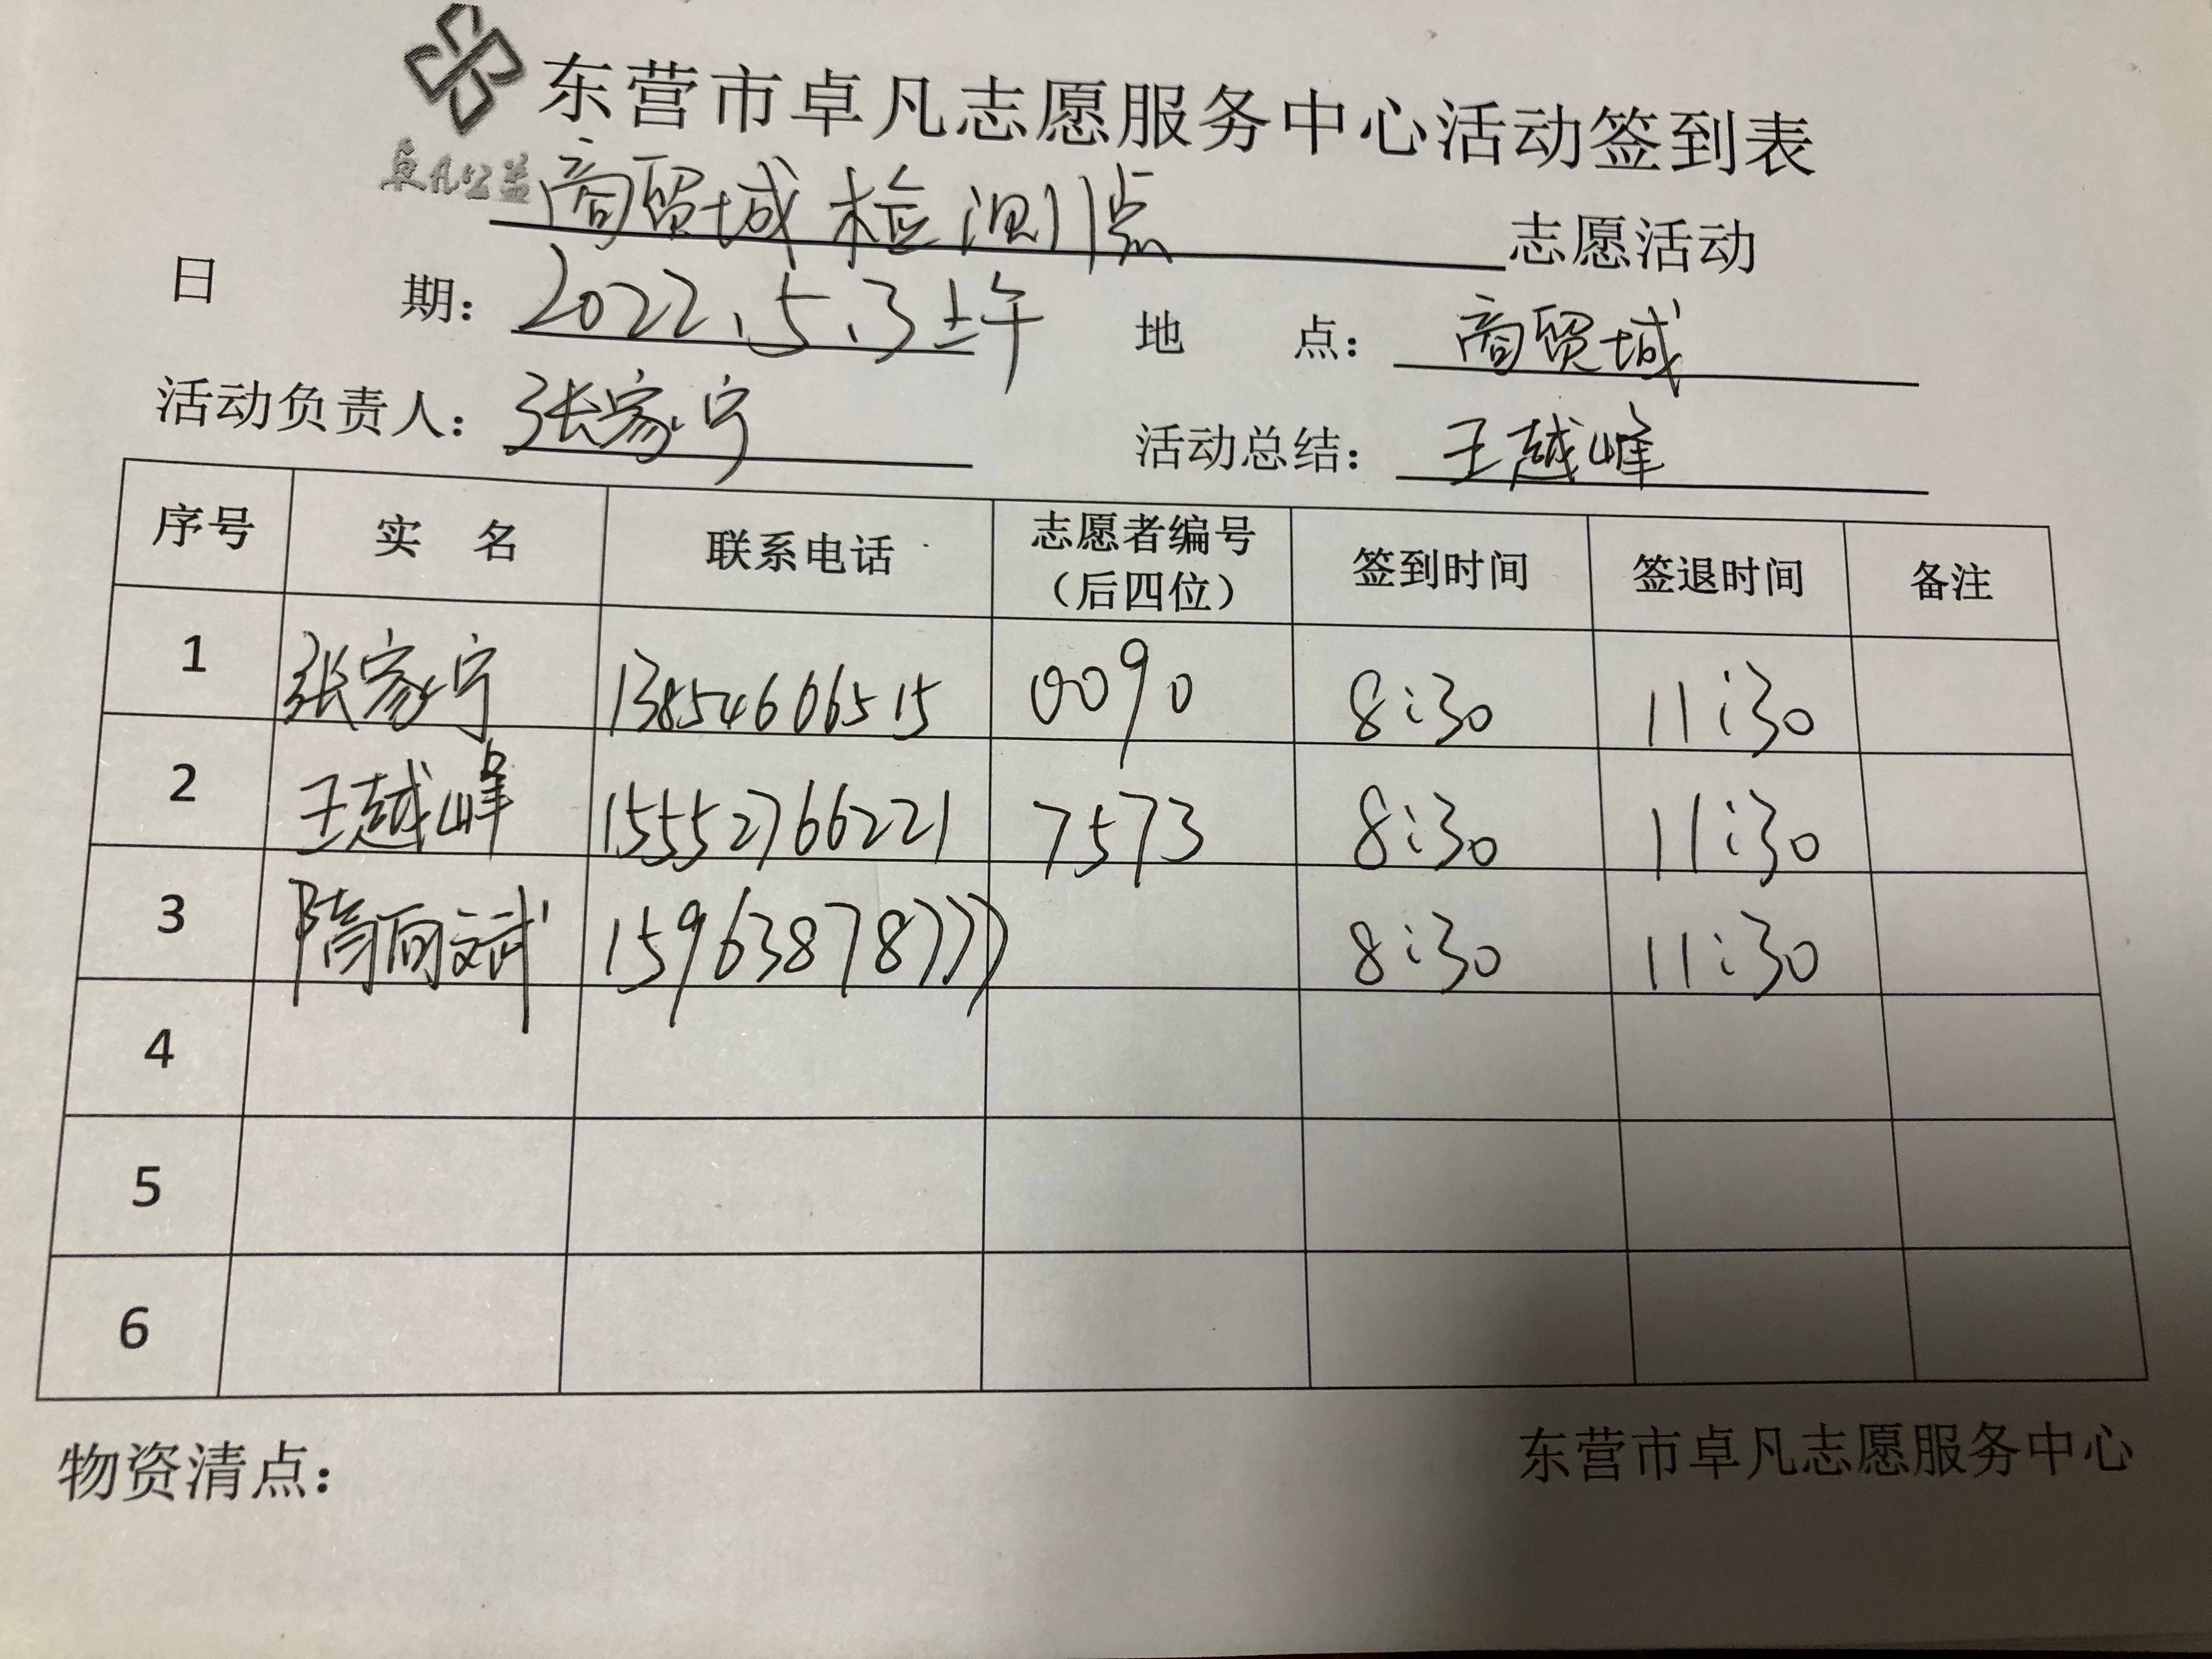 东营市卓凡志愿服务中心活动签到表
卓凡公益
商贸城检测点 志愿活动
日 期：2022.5.3上午 地 点：商贸城
活动负责人：张家宁 活动总结：王越峰
序号 实 名 联系电话 志愿者编号（后四位） 签到时间 签退时间 备注
1 张家宁 13854606515 0090 8:30 11:30
2 王越峰 15552766221 7573 8:30 11:30
3 隋向斌 15963878777 8:30 11:30
4
5
6
物资清点： 东营市卓凡志愿服务中心